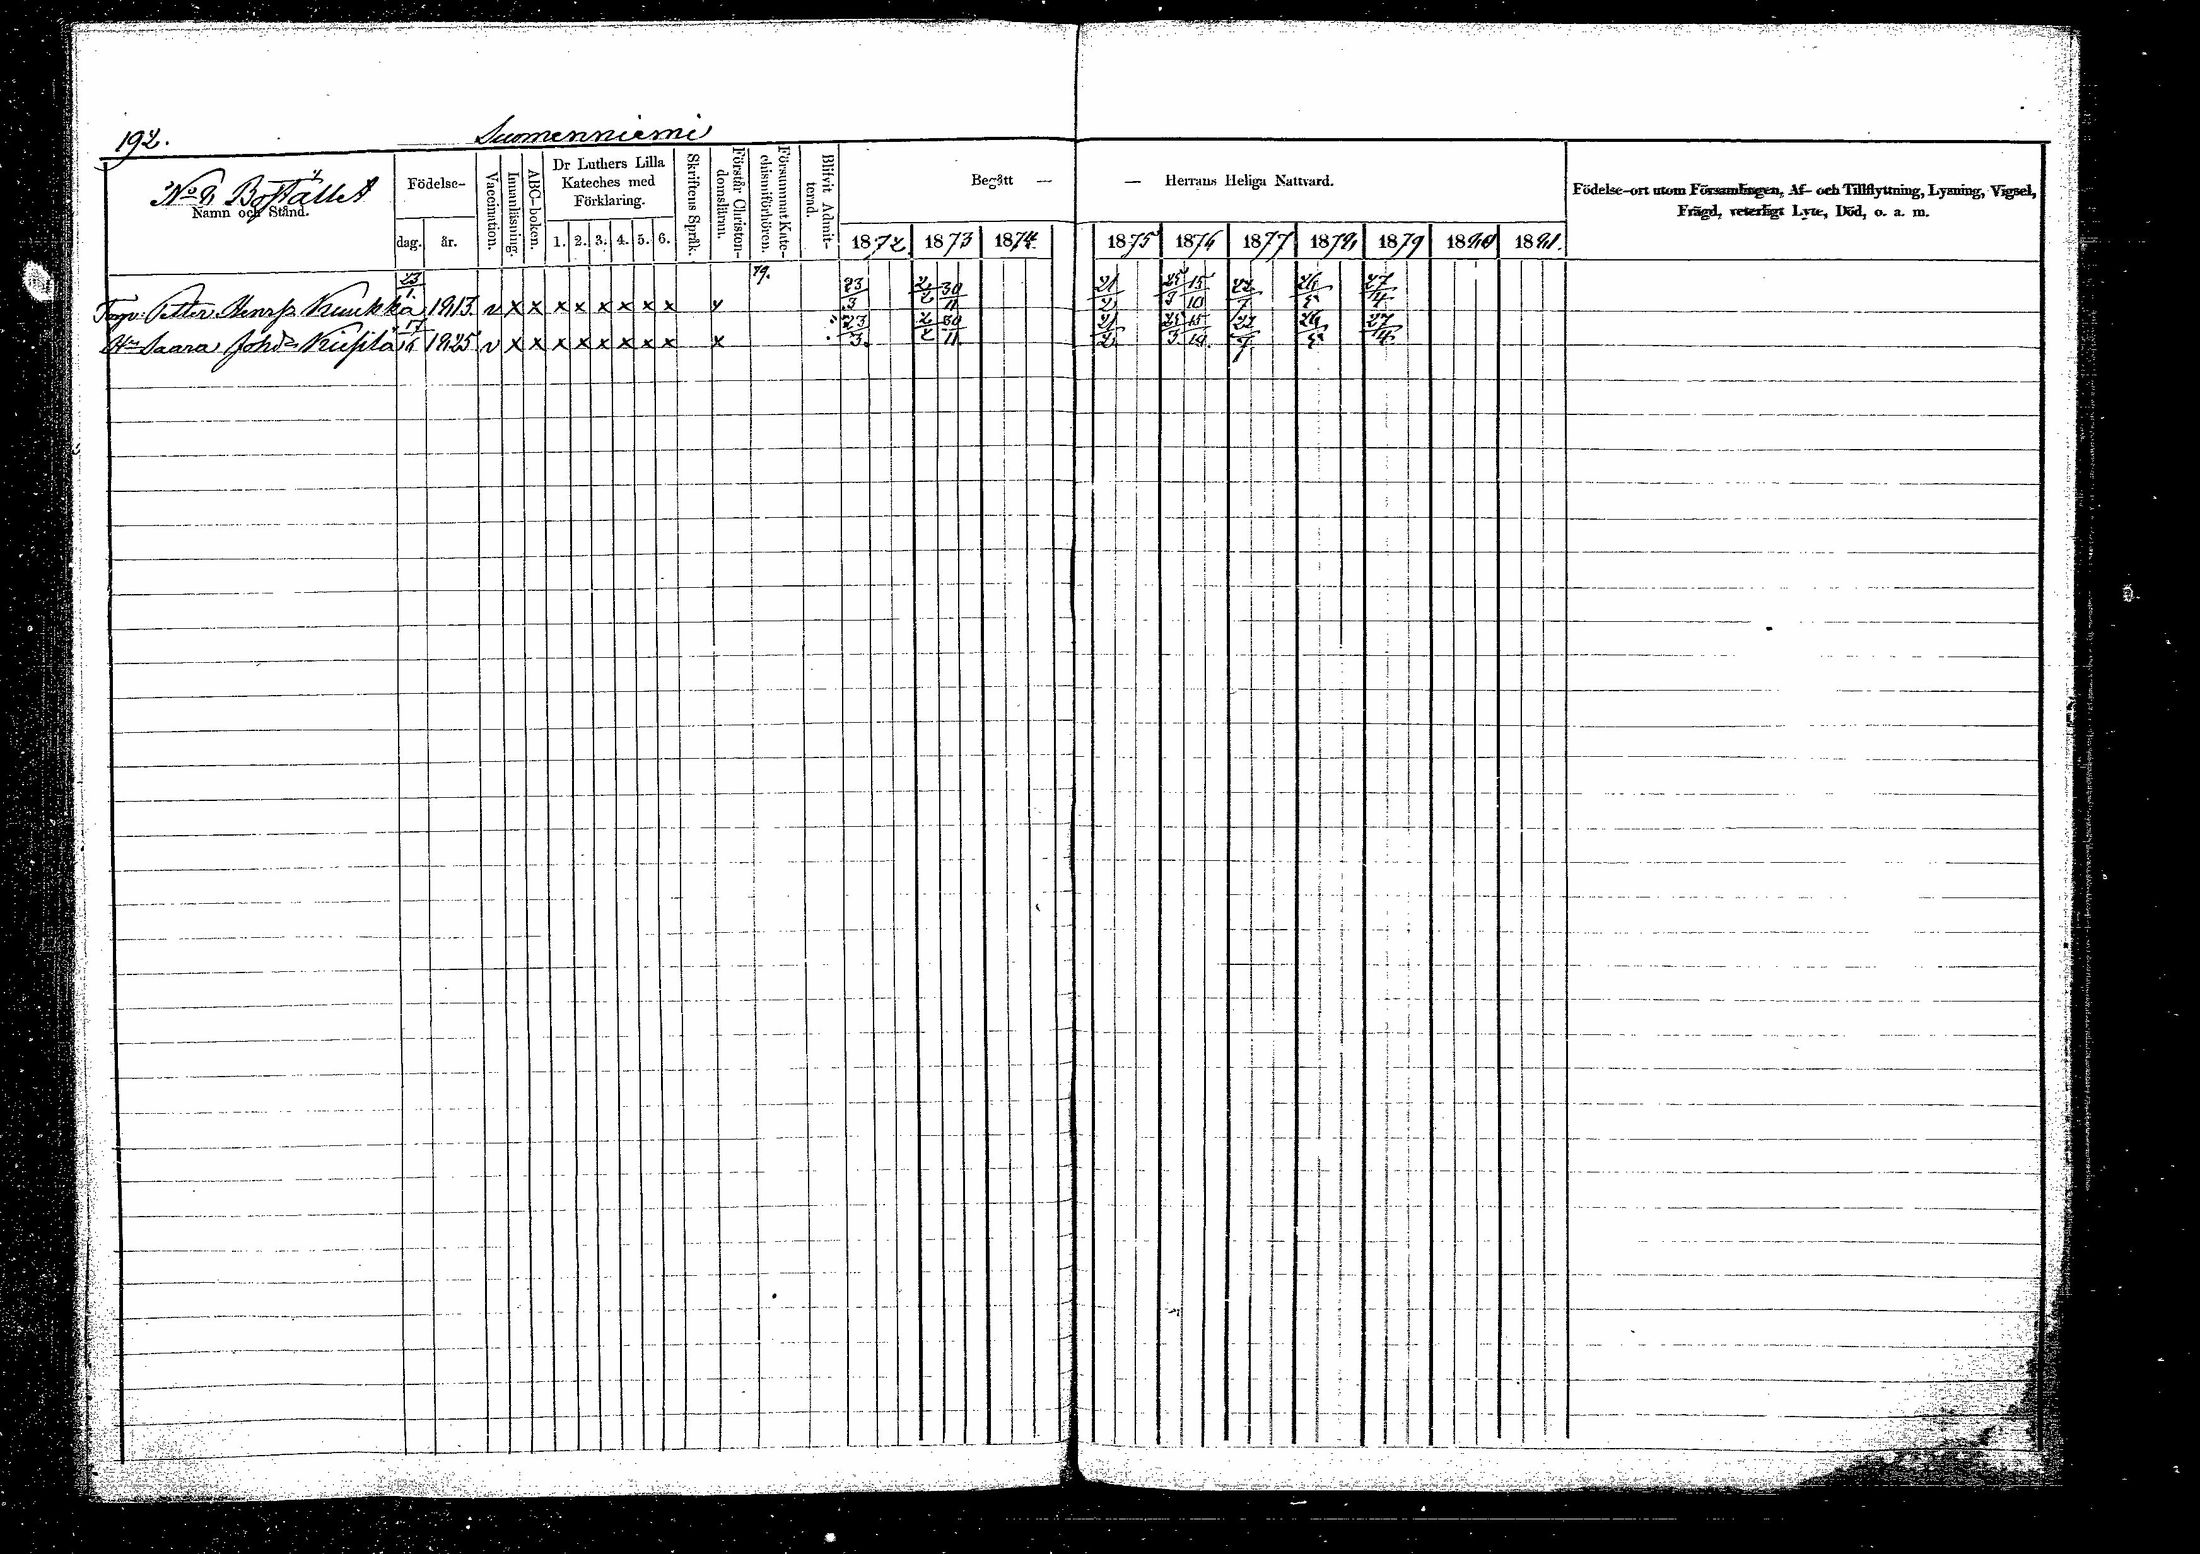 192. Suomenniemi
No 2 Bostället
Namn och Stånd.
Födelse-
dag. år.
Vaccination.
Innanläsning.
ABC-boken.
Dr Luthers Lilla Kateches med Förklaring.
1. 2. 3. 4. 5. 6.
Skriftens Språk.
Förstår Christendomsläran.
Försummat Katechismiförhören.
Blifvit Admitterad.
Begått — — Herrans Heliga Nattvard.
1872. 1873 1874. 1875 1876 1877 1878 1879 1880 1881.
Födelse-ort utom Församlingen, Af- och Tillflyttning, Lysning, Vigsel,
Frägd, veterligt Lyte, Död, o. a. m.
79.
Petter Henrss Kuukka 23/1. 1813. v x x x x x x x x x 23/3 2/2 30/11 21/2 25/3 15/10 22/7 26/5 27/4
Hu Saara Johdr 17/ 1825 v x x x x x x x x x 23/3. 2/2 30/11 21/2 25/3 15/10. 22/7 26/5 27/4